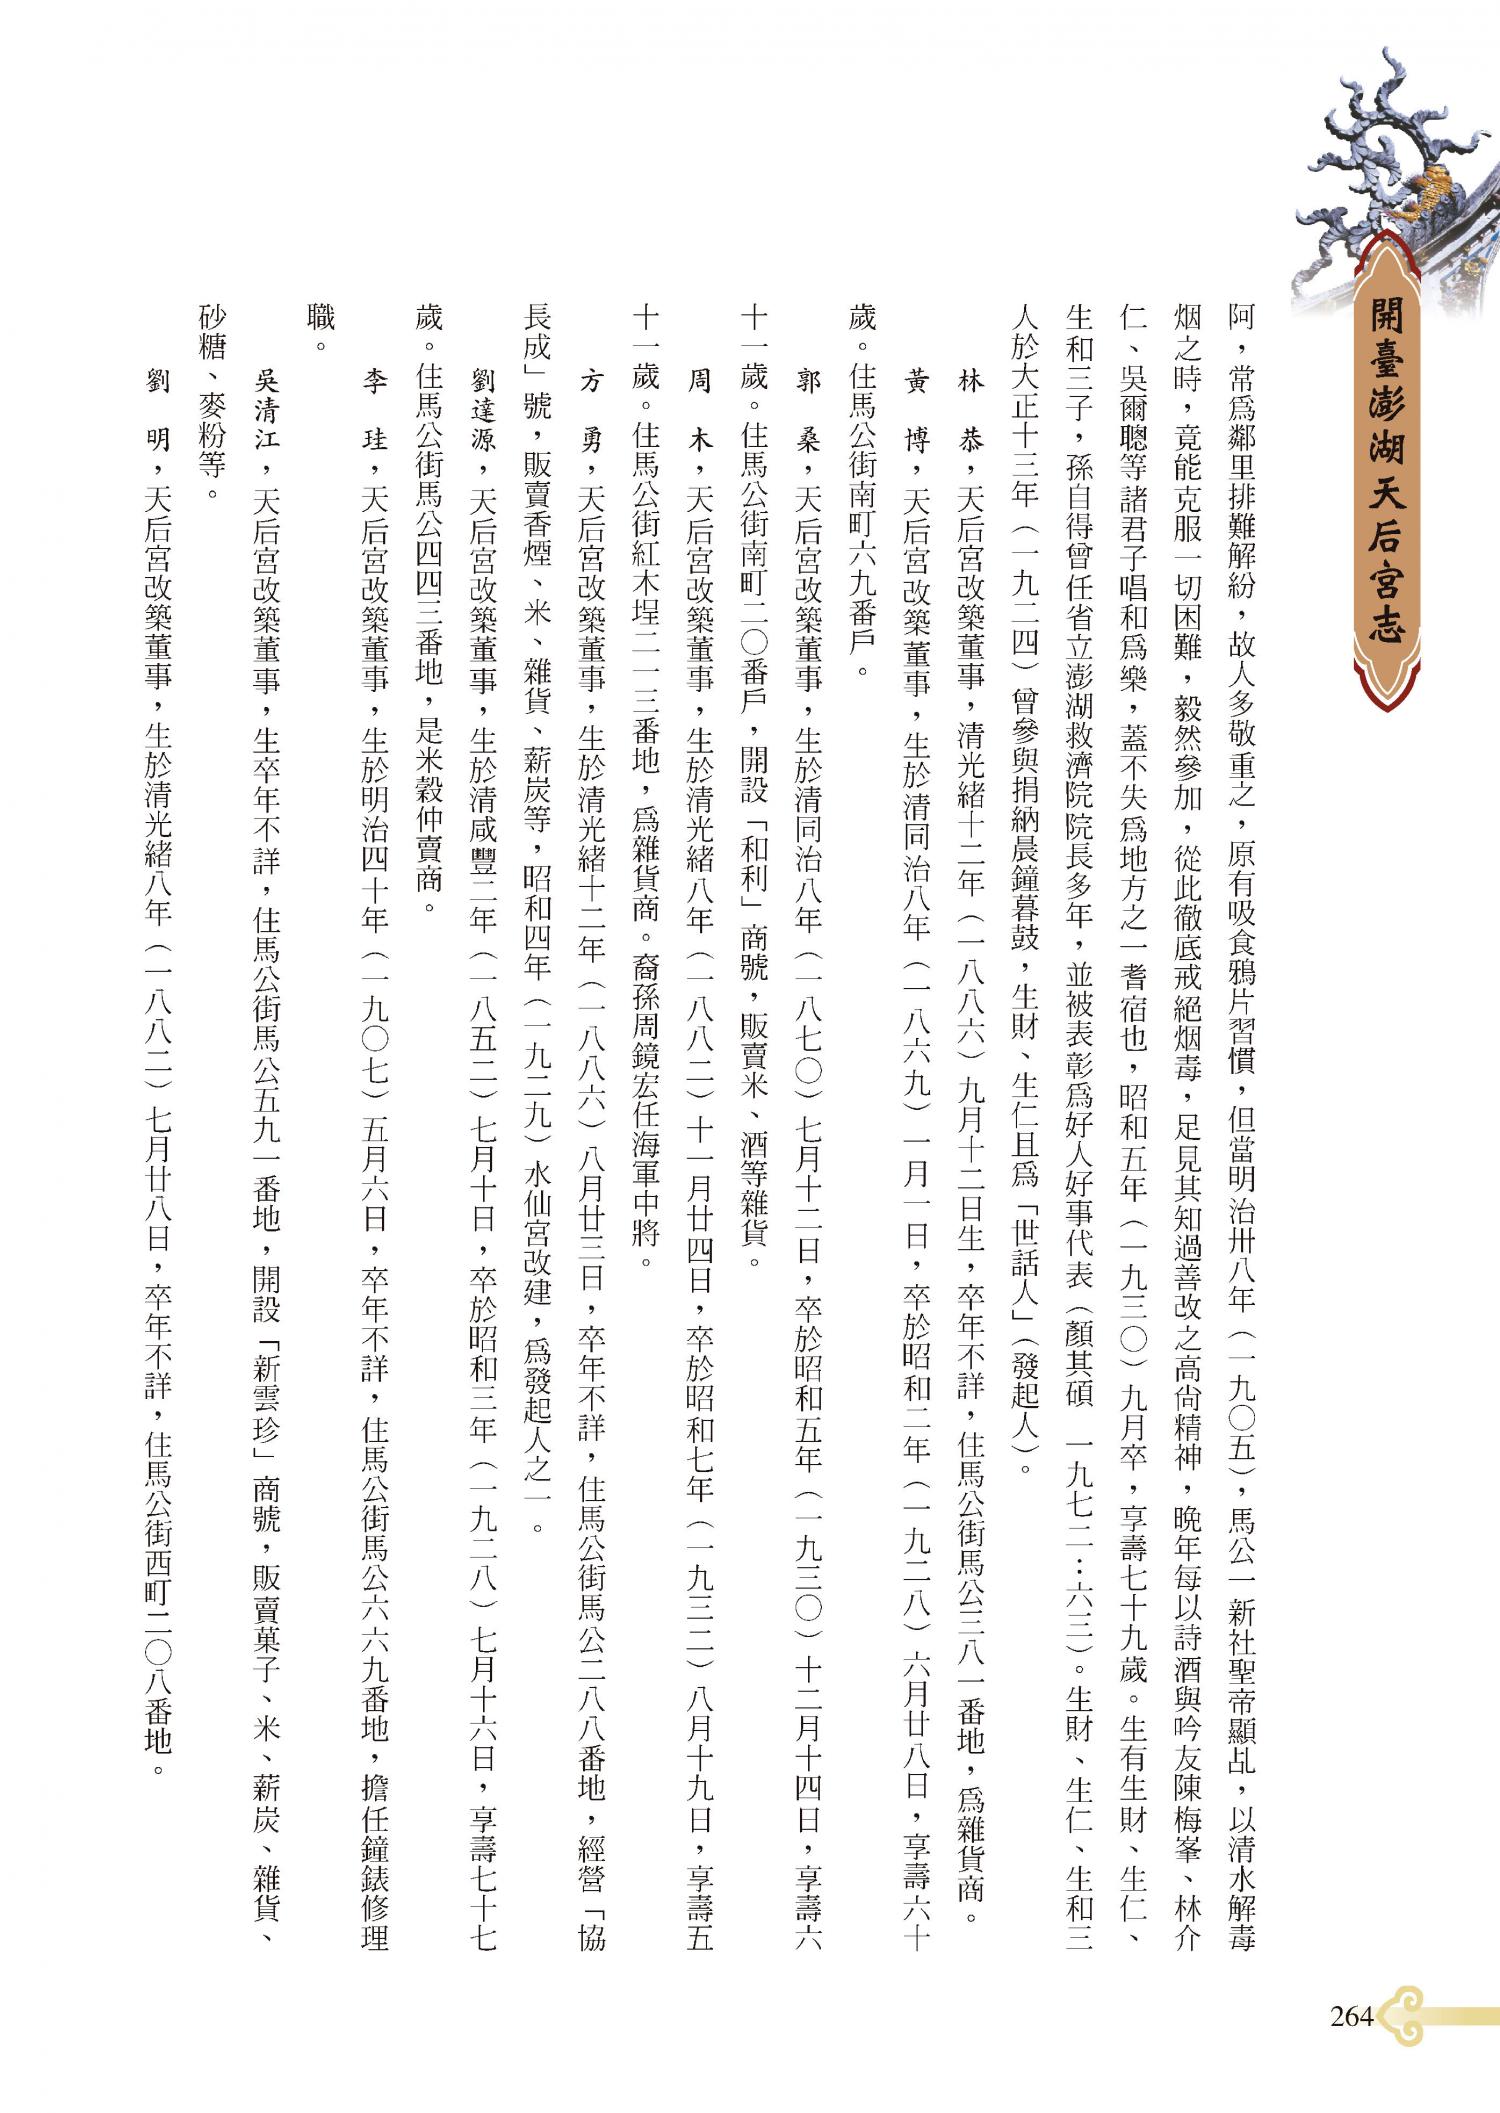 開臺澎湖天后宮志
阿，常爲鄰里排難解紛，故人多敬重之，原有吸食鴉片習慣，但當明治卅八年（一九〇五），馬公一新社聖帝顯乩，以清水解毒
烟之時，竟能克服一切困難，毅然參加，從此徹底戒絕烟毒，足見其知過善改之高尚精神，晚年每以詩酒與吟友陳梅峯、林介
仁、吳爾聰等諸君子唱和爲樂，蓋不失爲地方之一耆宿也，昭和五年（一九三〇）九月卒，享壽七十九歲。生有生財、生仁、
生和三子，孫自得曾任省立澎湖救濟院院長多年，並被表彰爲好人好事代表（顏其碩　一九七二：六三）。生財、生仁、生和三
人於大正十三年（一九二四）曾參與捐納晨鐘暮鼓，生財、生仁且爲「世話人」（發起人）。
林　恭，天后宮改築董事，清光緒十二年（一八八六）九月十二日生，卒年不詳，住馬公街馬公三八一番地，爲雜貨商。
黃　博，天后宮改築董事，生於清同治八年（一八六九）一月一日，卒於昭和二年（一九二八）六月廿八日，享壽六十
歲。住馬公街南町六九番戶。
郭　桑，天后宮改築董事，生於清同治八年（一八七〇）七月十二日，卒於昭和五年（一九三〇）十二月十四日，享壽六
十一歲。住馬公街南町二〇番戶，開設「和利」商號，販賣米、酒等雜貨。
周　木，天后宮改築董事，生於清光緒八年（一八八二）十一月廿四日，卒於昭和七年（一九三二）八月十九日，享壽五
十一歲。住馬公街紅木埕二一三番地，爲雜貨商。裔孫周鏡宏任海軍中將。
方　勇，天后宮改築董事，生於清光緒十二年（一八八六）八月廿三日，卒年不詳，住馬公街馬公二八八番地，經營「協
長成」號，販賣香煙、米、雜貨、薪炭等，昭和四年（一九二九）水仙宮改建，爲發起人之一。
劉達源，天后宮改築董事，生於清咸豐二年（一八五二）七月十日，卒於昭和三年（一九二八）七月十六日，享壽七十七
歲。住馬公街馬公四四三番地，是米穀仲賣商。
李　珪，天后宮改築董事，生於明治四十年（一九〇七）五月六日，卒年不詳，住馬公街馬公六六九番地，擔任鐘錶修理
職。
吳清江，天后宮改築董事，生卒年不詳，住馬公街馬公五九一番地，開設「新雲珍」商號，販賣菓子、米、薪炭、雜貨、
砂糖、麥粉等。
劉　明，天后宮改築董事，生於清光緒八年（一八八二）七月廿八日，卒年不詳，住馬公街西町二〇八番地。
264